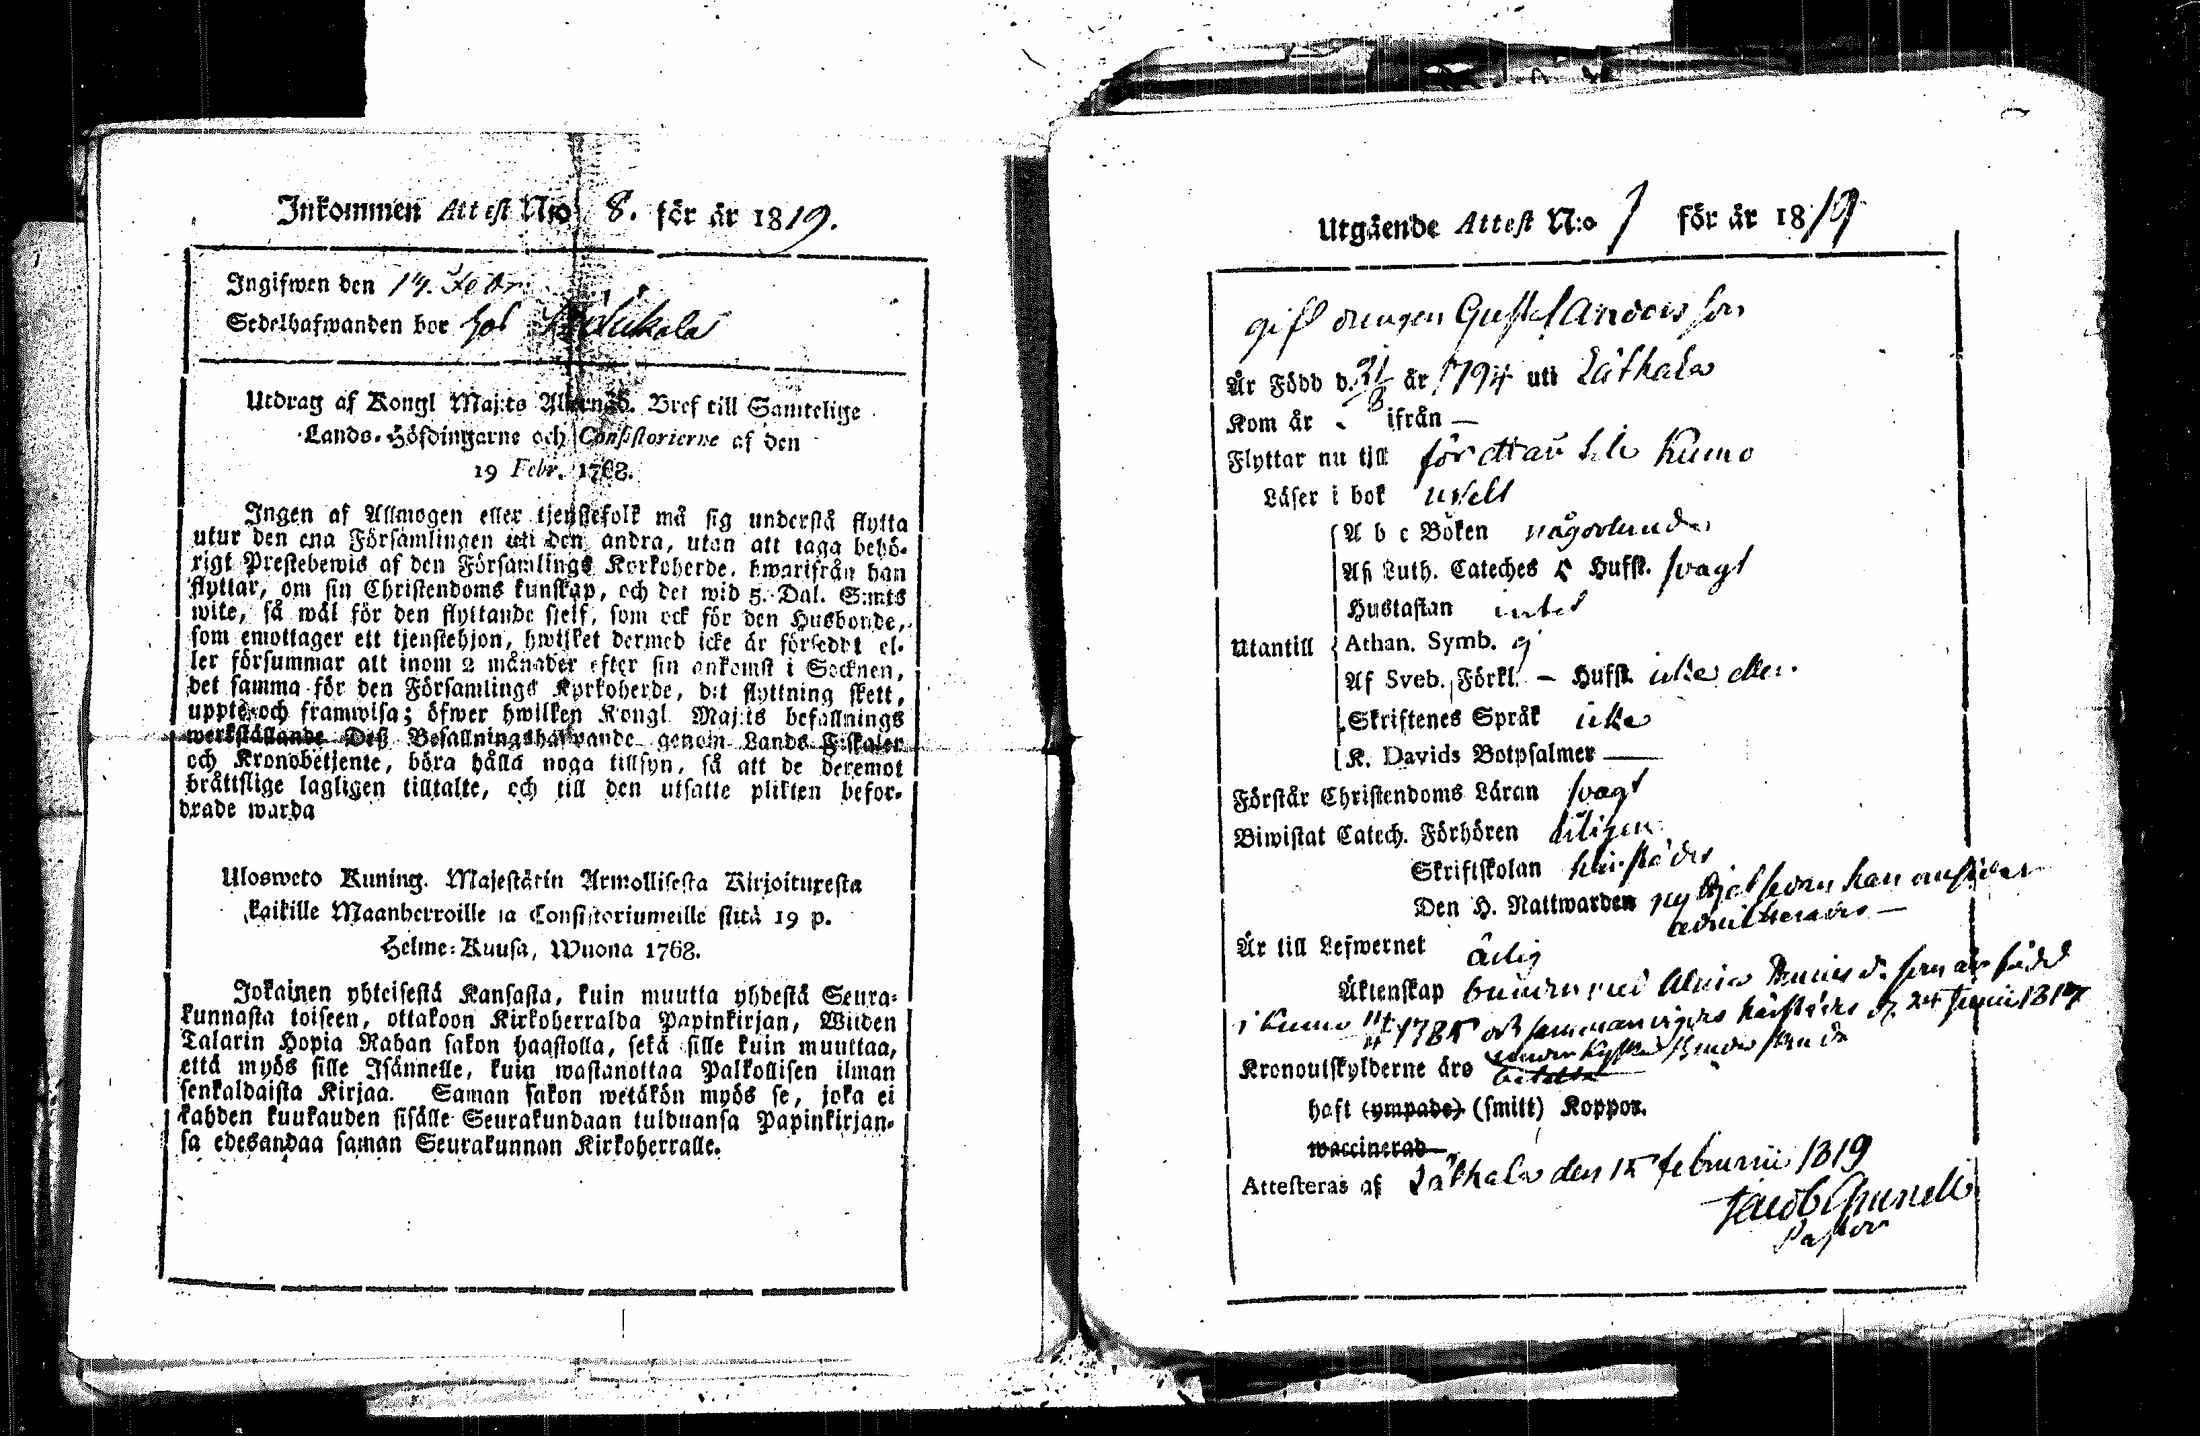 Inkommen Attest N:o 8. för år 1819.
Ingifwen den 14. Febr.
Sedelhafwanden bor hos
Utdrag af Kongl Maj:ts Allernåd. Bref till Samtelige
Lands-Höfdingarne och Consistorierne af den
19 Febr. 1768.
Ingen af Allmogen eller tjenstefolk må sig understå flytta
utur den ena Församlingen uti den andra, utan att taga behö-
rigt Prestebewis af den Församlings Kyrkoherde, hwarifrån han
flyttar, om sin Christendoms kunskap, och det wid 5. Dal. S:mts
wite, så wäl för den flyttande sielf, som ock för den Husbonde,
som emottager ett tjenstehjon, hwilket dermed icke är förseddt el-
ler försummar att inom 2 månader efter sin ankomst i Socknen,
det samma för den Församlings Kyrkoherde, dit flyttning skett,
uppte och framwisa; öfwer hwilken Kongl Maj:ts befallnings
werkställande Deß Befallningshafwande genom Lands Fiskaler
och Kronobetjente, böra hålla noga tillsyn, så att de deremot
bråttslige lagligen tilltalte, och till den utsatte plikten befor-
drade warda
Ulosweto Kuning. Majestätin Armollisesta Kirjoituxesta
kaikille Maanherroille ja Consistoriumeille siitä 19 p.
Helme-Kuusa, Wuona 1768.
Jokainen yhteisestä Kansasta, kuin muutta yhdestä Seura-
kunnasta toiseen, ottakoon Kirkoherralda Papinkirjan, Wiiden
Talarin Hopia Rahan sakon haastolla, sekä sille kuin muuttaa,
että myös sille Isännelle, kuin wastanottaa Palkollisen ilman
senkaldaista Kirjaa. Saman sakon wetäkön myös se, joka ei
kahden kuukauden sisälle Seurakundaan tulduansa Papinkirjan-
sa edesandaa saman Seurakunnan Kirkoherralle.
Utgående Attest N:o 7 för år 1819
gift drengen Gustaf Andersson
Är Född d. 31/8 år 1794 uti Låthala
Kom år - ifrån —
Flyttar nu till Kumo
Läser i bok uselt
A b c Boken någorlunda
Af Luth. Cateches 5 Hufst. svagt
Hustaflan intet
Utantill Athan. Symb. ej
Af Sveb. Förkl. – Hufst. icke eller.
Skriftenes Språk icke
K. Davids Botpsalmer —
Förstår Christendoms Läran svagt
Biwistat Catech. Förhören
Skriftskolan härstädes
Den H. Nattwarden nyttjat han
admitterades —
Är till Lefwernet ärlig
Äktenskap bunden med som är född
i Kumo 1785 och sammanvigdes härstädes d. 24 Junii 1817
Kronoutskylderne äro
haft (ympade) (smitt) Koppor.
waccinerad
Attesteras af Låthala den 15 februarii 1819
Jacob
Pastor